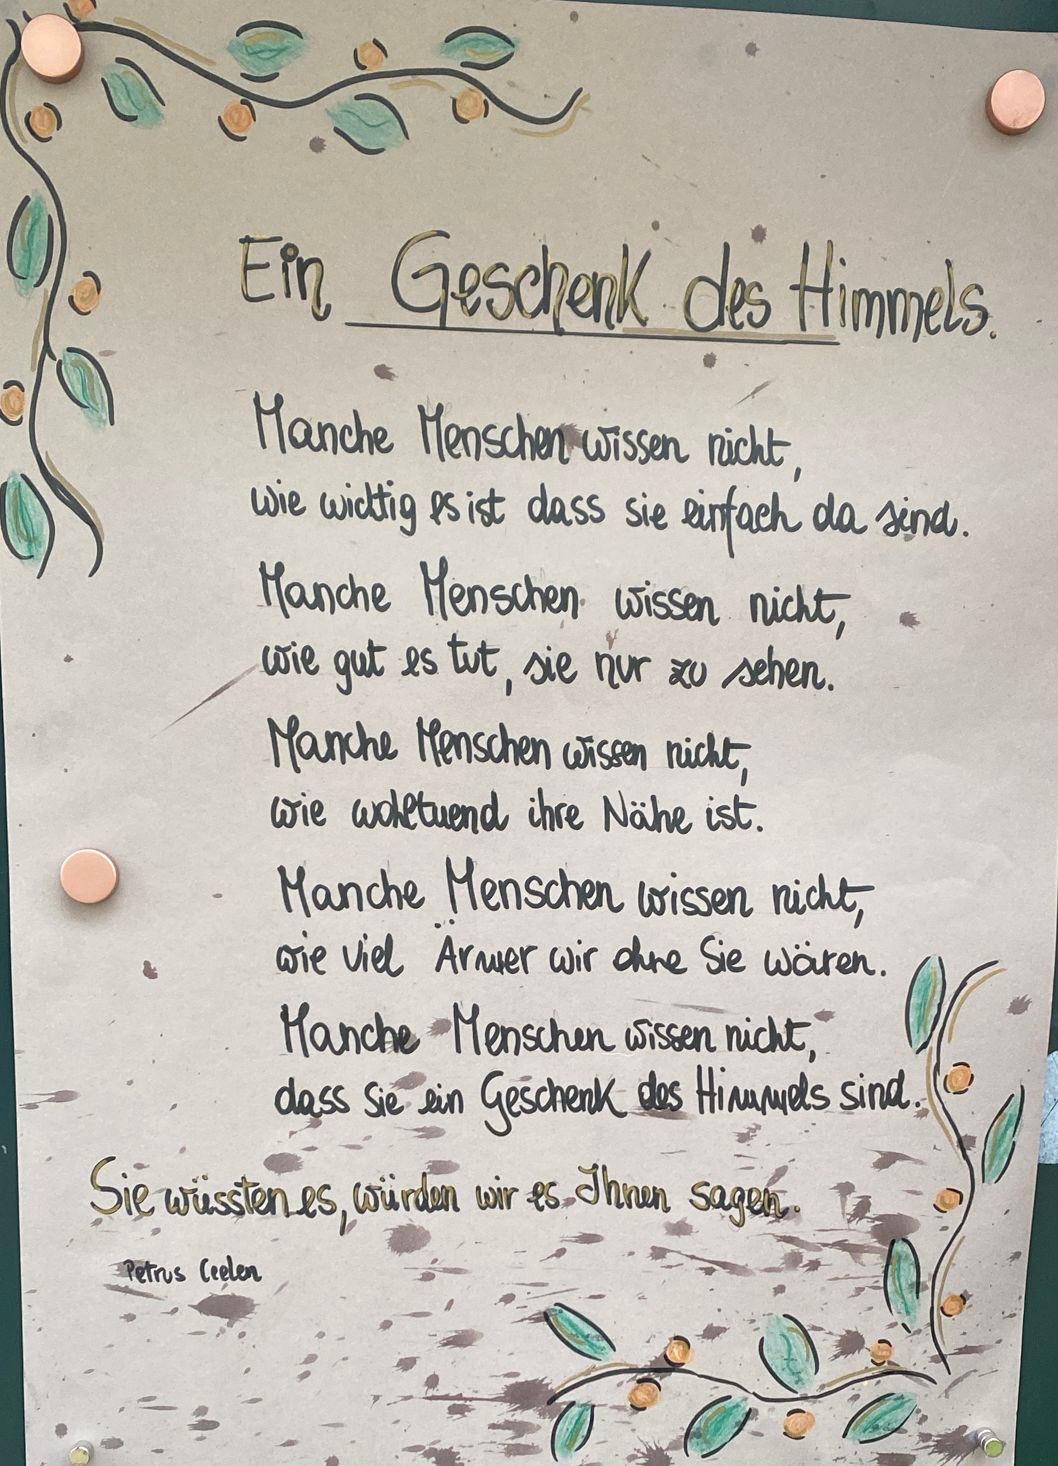 Ein Geschenk des Himmels.
Manche Menschen wissen nicht,
wie wichtig es ist dass sie einfach da sind.
Manche Menschen wissen nicht,
wie gut es tut, sie nur zu sehen.
Manche Menschen wissen nicht,
wie wohltuend ihre Nähe ist.
Manche Menschen wissen nicht,
wie viel Ärmer wir ohne Sie wären.
Manche Menschen wissen nicht,
dass sie ein Geschenk des Himmels sind.
Sie wüssten es, würden wir es Ihnen sagen.
Petrus Ceelen